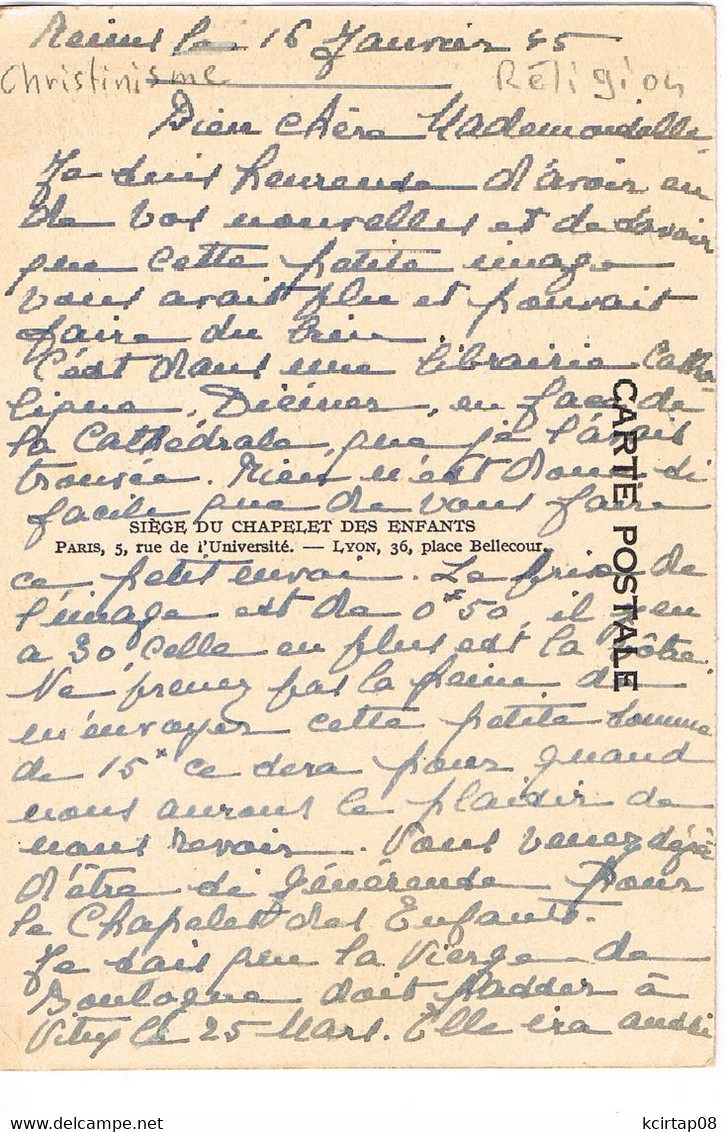 Reims le 16 Janvier 45
Christinisme Réligion
Bien chère Mademoiselle,
Je suis heureuse d'avoir eu
de vos nouvelles et de savoir
que cette petite image
vous avait plu et pouvait
faire du bien.
C'est dans une librairie Catho-
lique, en face de
la Cathédrale, que je l'avais
trouvée. Rien n'est donc si
facile que de vous faire
CARTE POSTALE
SIÈGE DU CHAPELET DES ENFANTS
PARIS, 5, rue de l'Université. — LYON, 36, place Bellecour.
ce petit envoi. Le prix de
l'image est de 0 50, il y en
a 30, celle en plus est la vôtre.
Ne prenez pas la peine de
m'envoyer cette petite somme
de 15 ce sera pour quand
nous aurons le plaisir de
nous revoir. Vous venez déjà
d'être si généreuse pour
le Chapelet des Enfants.
Je sais que la Vierge de
Boulogne doit passer à
Vitry le 25 Mars. Elle ira aussi
kcirtap08